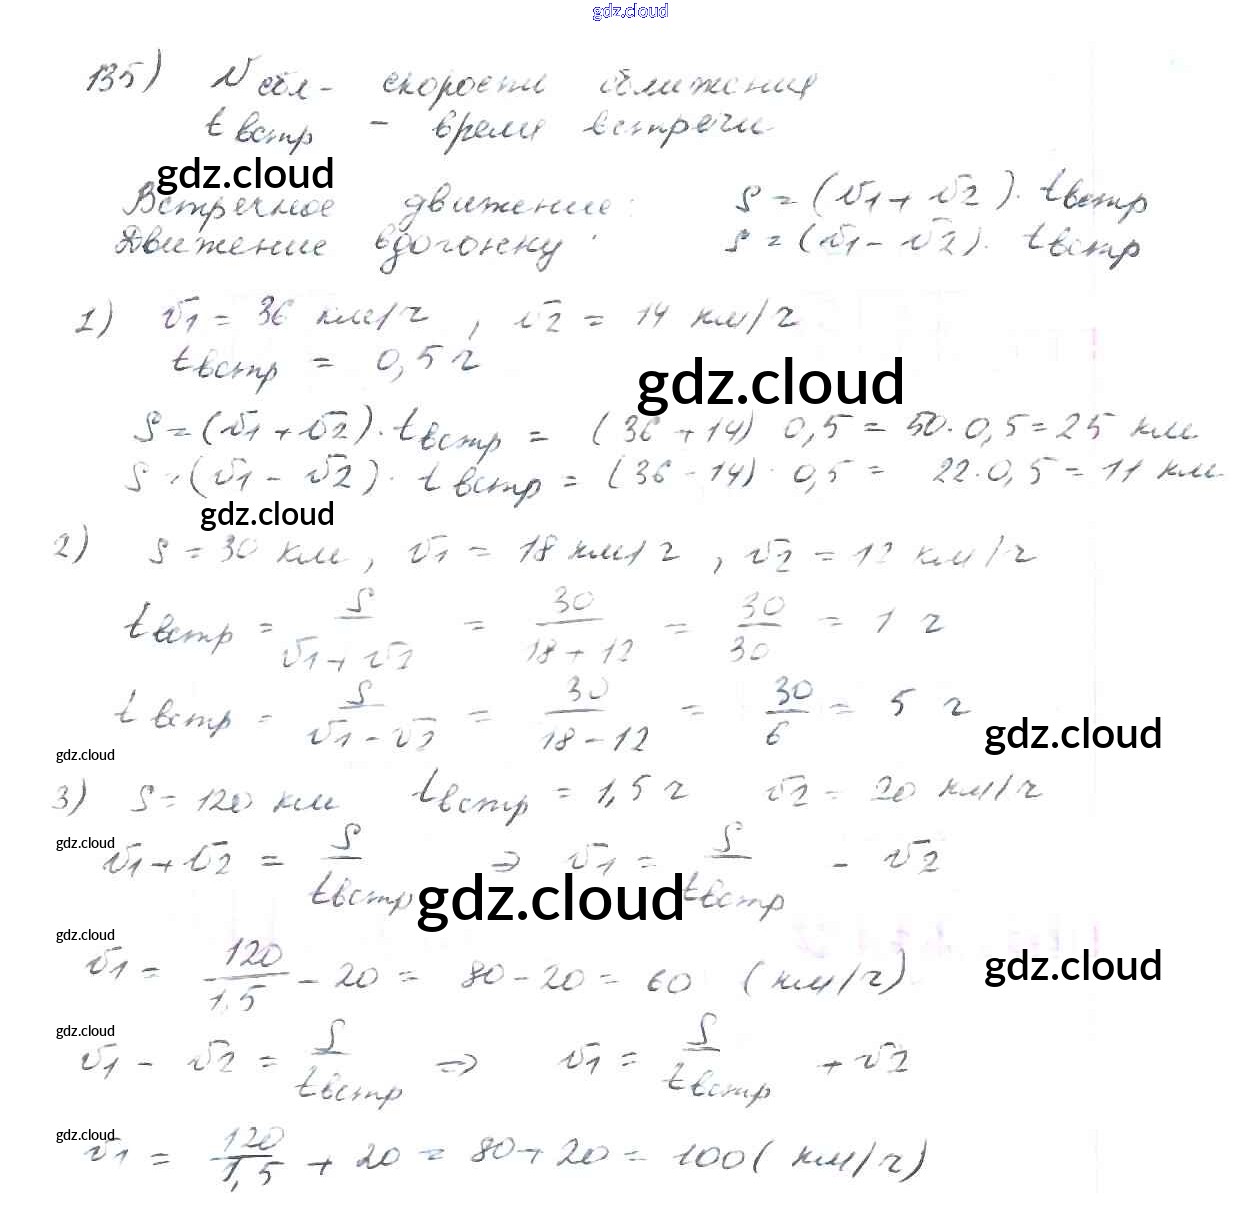 gdz.cloud
135) vсбл - скорости сближения
tвстр - время встречи
gdz.cloud
Встречное движение: S = (v1 + v2) · tвстр
Движение вдогонку: S = (v1 - v2) · tвстр
1) v1 = 36 км/ч, v2 = 14 км/ч
tвстр = 0,5 ч
gdz.cloud
S = (v1 + v2) · tвстр = (36 + 14) 0,5 = 50 · 0,5 = 25 км
S = (v1 - v2) · tвстр = (36 - 14) · 0,5 = 22 · 0,5 = 11 км
gdz.cloud
2) S = 30 км, v1 = 18 км/ч, v2 = 12 км/ч
tвстр = S/(v1 + v2) = 30/(18 + 12) = 30/30 = 1 ч
tвстр = S/(v1 - v2) = 30/(18 - 12) = 30/6 = 5 ч
gdz.cloud
gdz.cloud
3) S = 120 км tвстр = 1,5 ч v2 = 20 км/ч
gdz.cloud
v1 + v2 = S/tвстр ⇒ v1 = S/tвстр - v2
gdz.cloud
gdz.cloud
v1 = 120/1,5 - 20 = 80 - 20 = 60 (км/ч)
gdz.cloud
gdz.cloud
v1 - v2 = S/tвстр ⇒ v1 = S/tвстр + v2
gdz.cloud
v1 = 120/1,5 + 20 = 80 + 20 = 100 (км/ч)